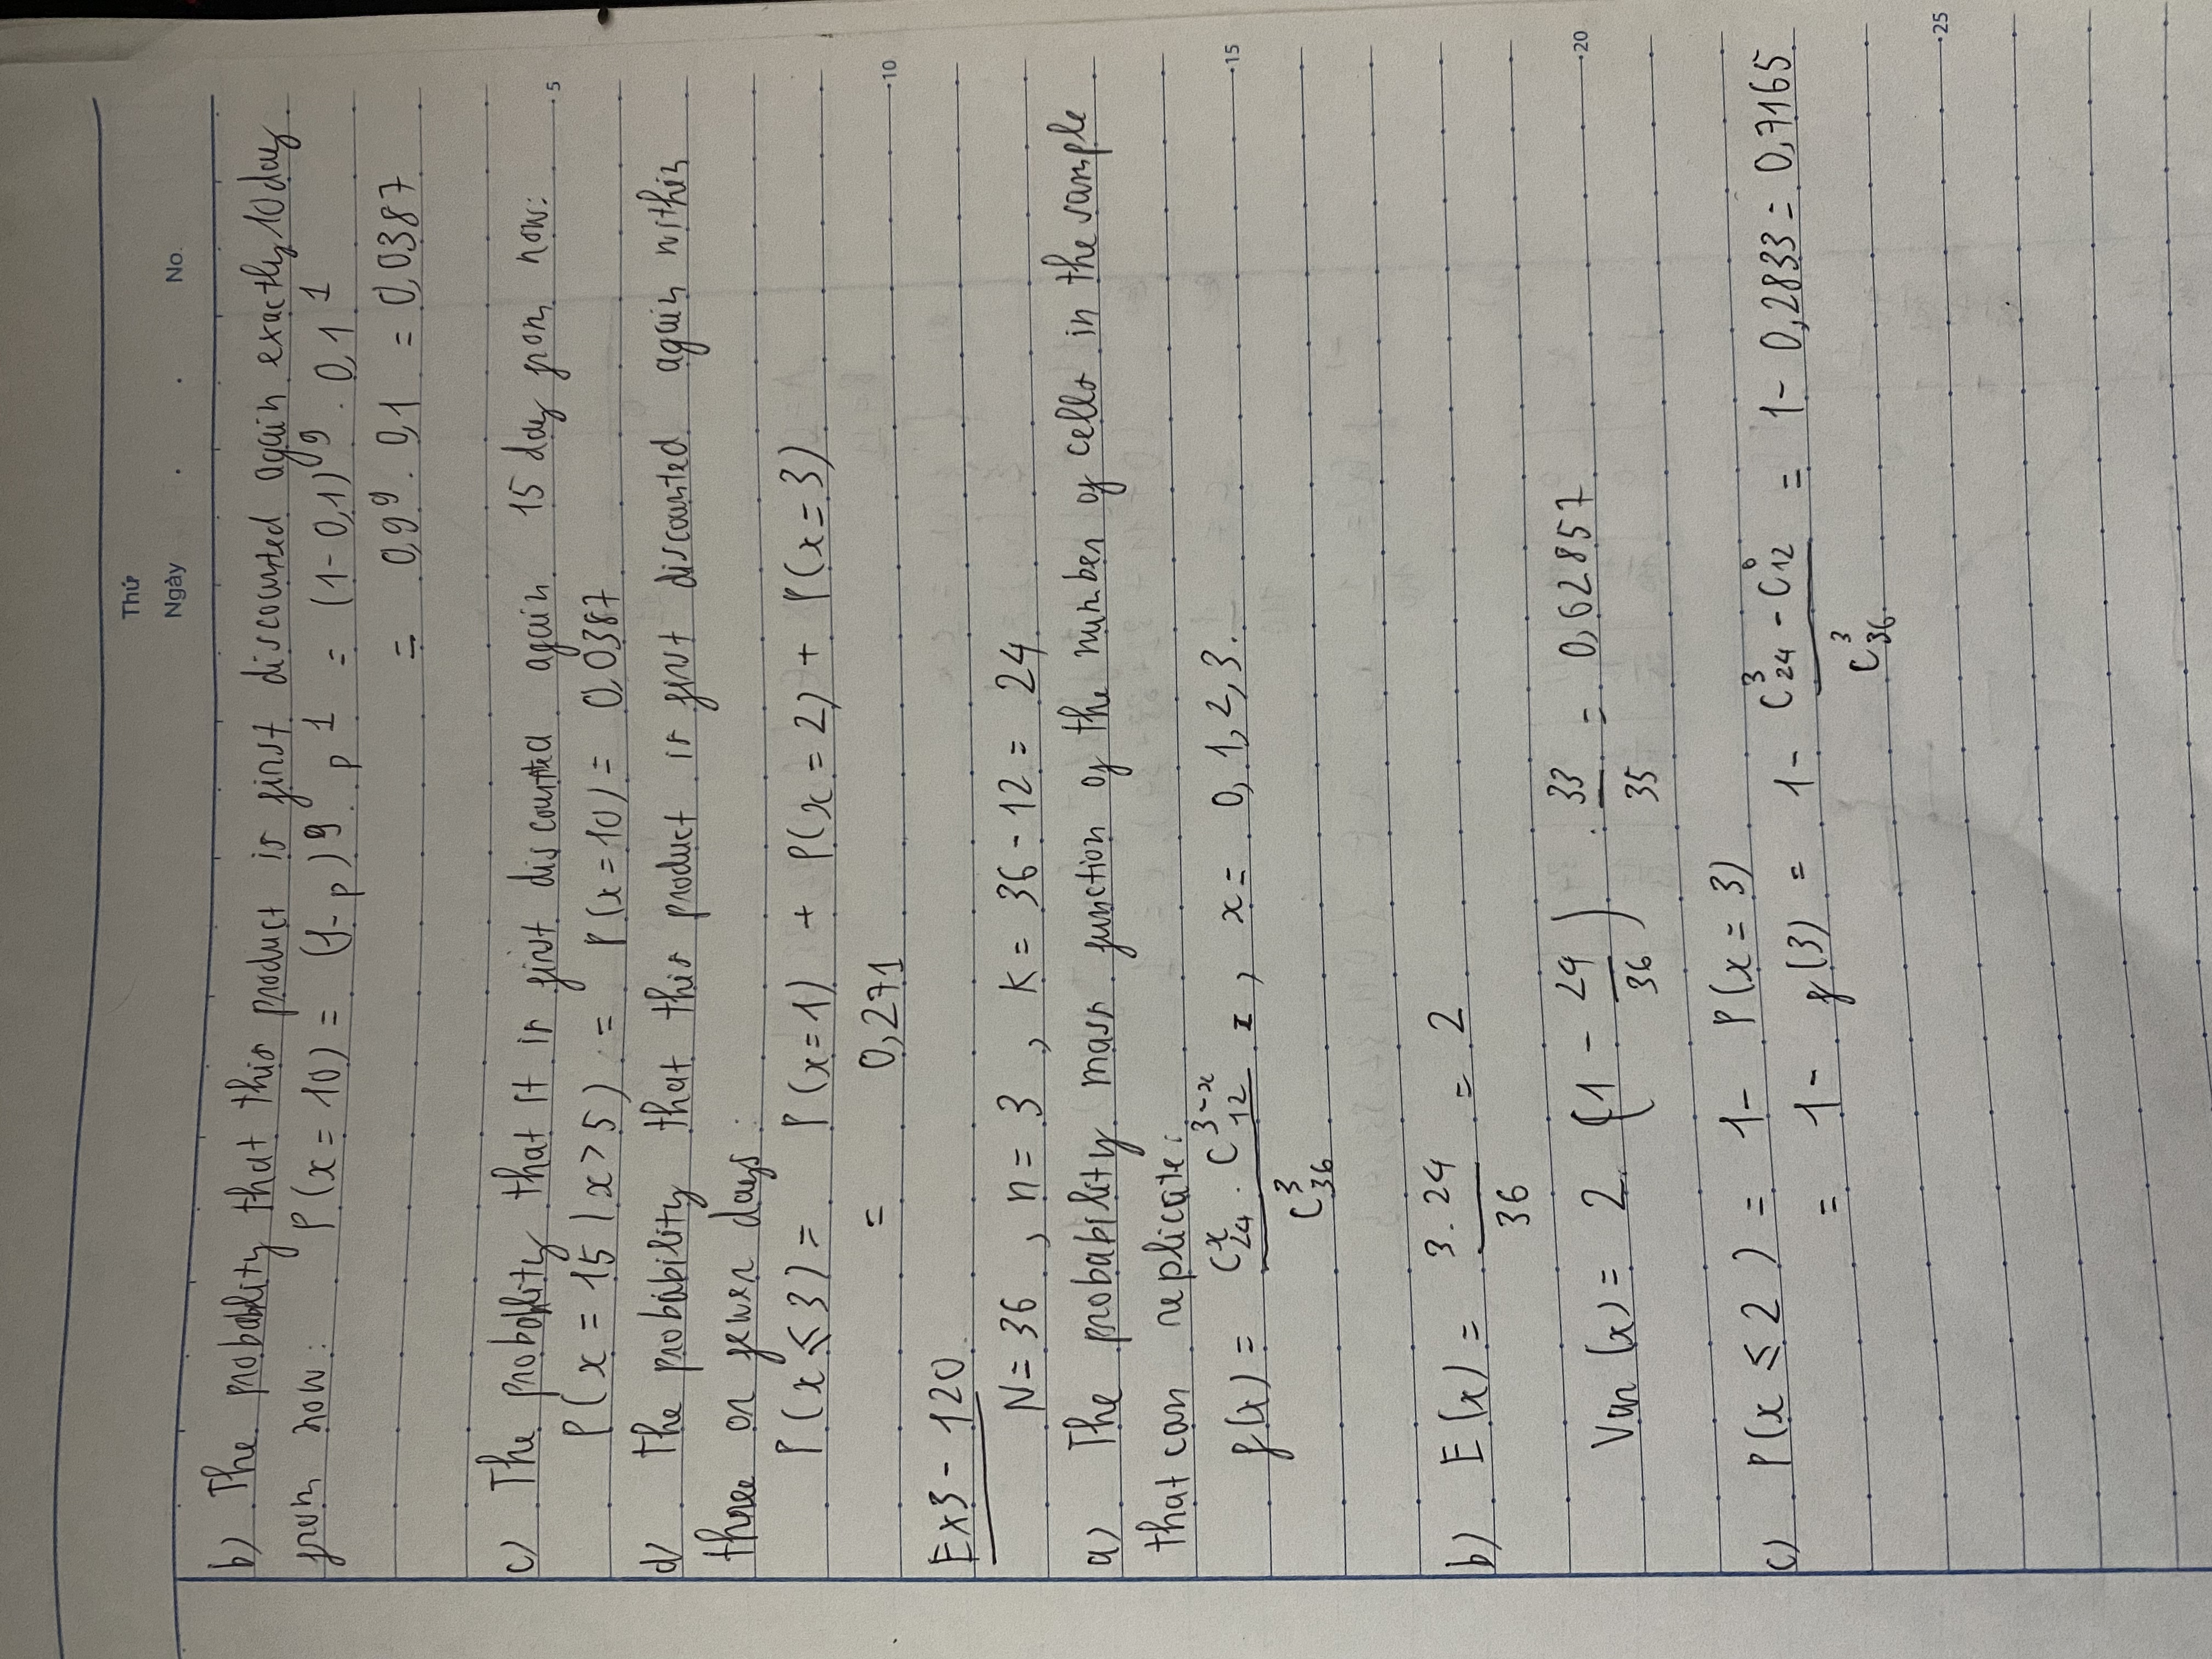 Thứ
Ngày . . No.
b) The probability that this product is first discounted again exactly 10 day
from now: P(x = 10) = (1-p)^9 . p^1 = (1-0,1)^9 . 0,1^1
= 0,9^9 . 0,1 = 0,0387
c) The probability that it is first discounted again 15 day from now:
5
P(x = 15 | x > 5) = P(x=10) = 0,0387
d) The probability that this product is first discounted again within
three or fewer days:
P(x ≤ 3) = P(x=1) + P(x = 2) + P(x = 3)
= 0,271
10
Ex3 - 120.
N = 36 , n = 3 , K = 36 - 12 = 24
a) The probability mass function of the number of cells in the sample
that can replicate:
f(x) = (C_24^x . C_12^(3-x)) / C_36^3 , x = 0, 1, 2, 3.
15
b) E(x) = (3. 24) / 36 = 2
Var (x) = 2. (1 - 24/36) . 33/35 = 0,62857
20
c) P(x ≤ 2) = 1 - P(x = 3)
= 1 - f(3) = 1 - (C_24^3 - C_12^0) / C_36^3 = 1 - 0,2833 = 0,7165
25